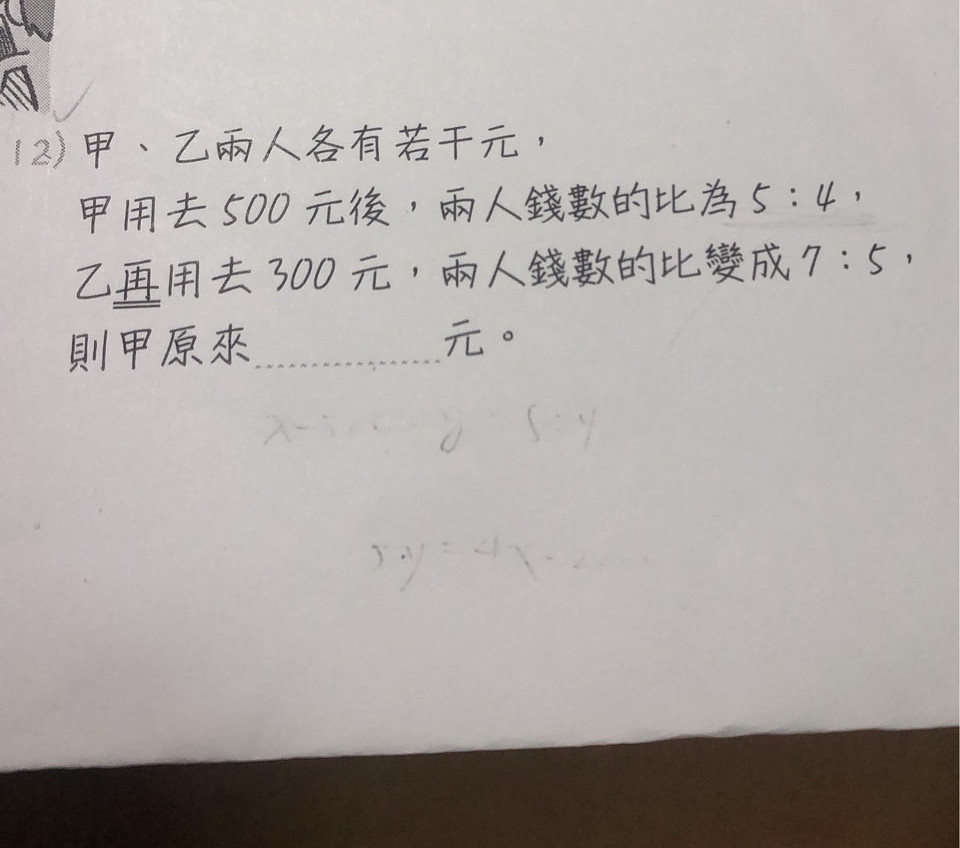 12) 甲、乙兩人各有若干元，
甲用去500元後，兩人錢數的比為5：4，
乙再用去300元，兩人錢數的比變成7：5，
則甲原來 元。
y 5:4
5y=4x-2